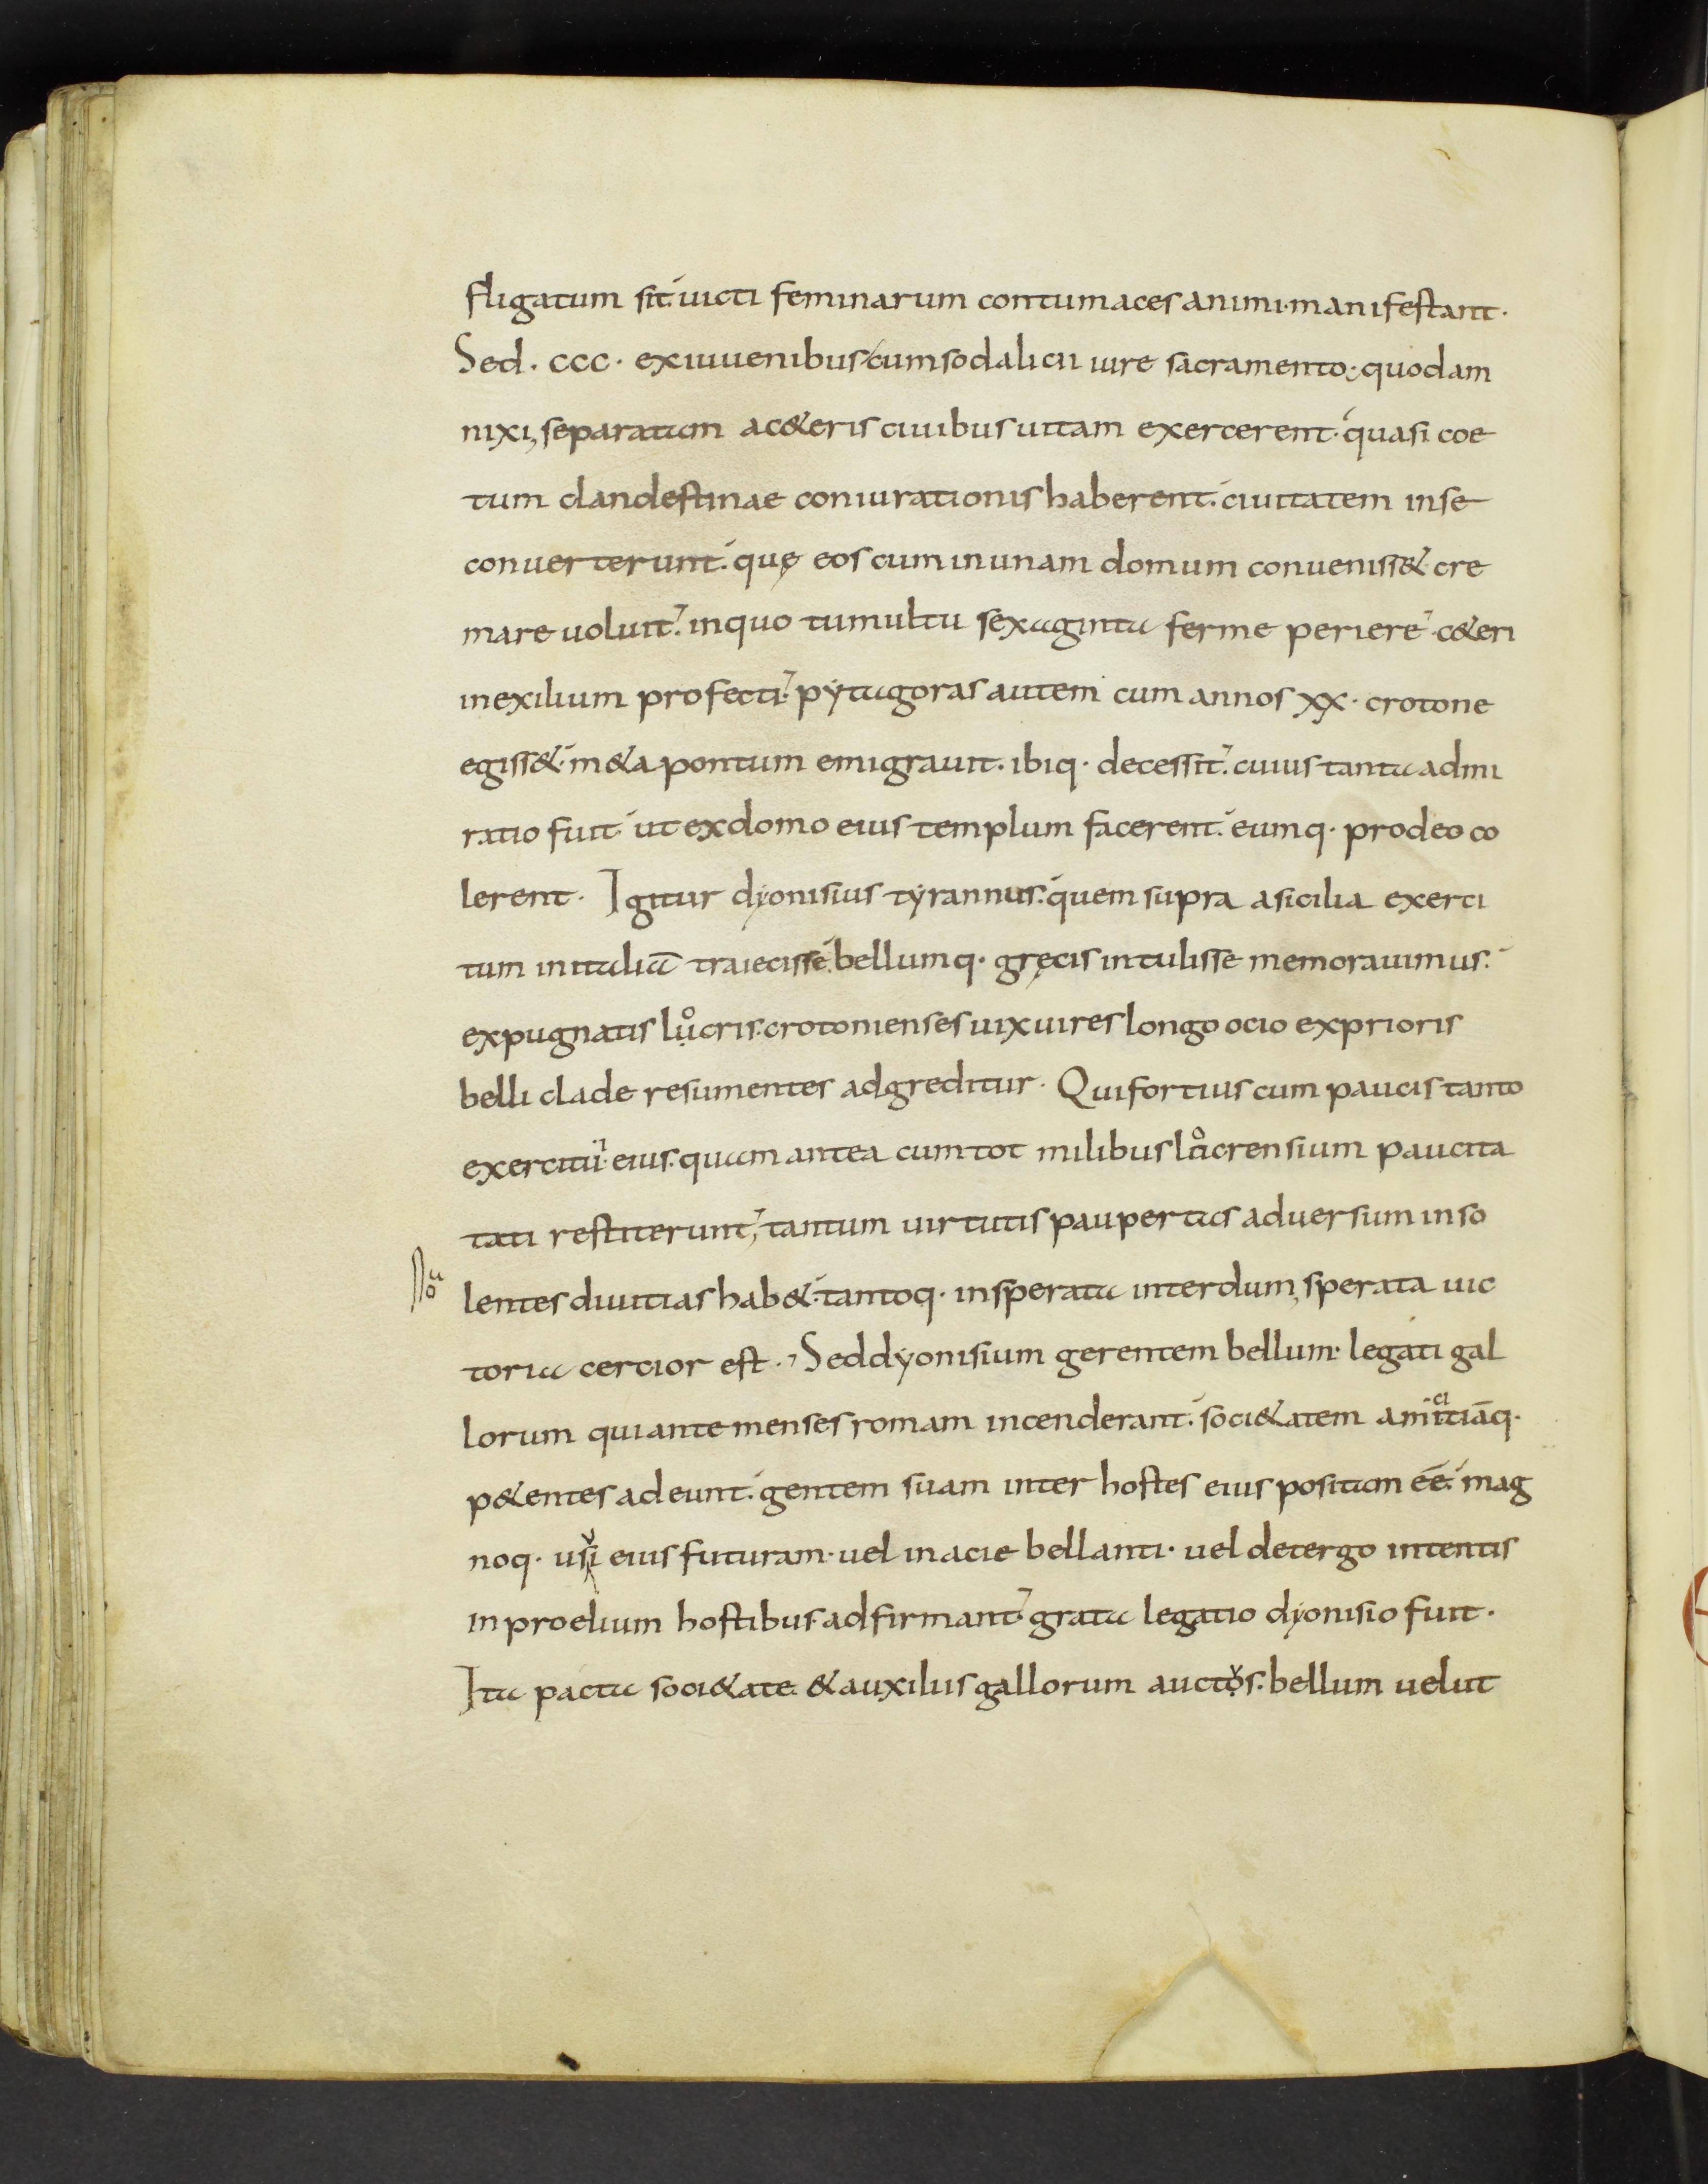 fligatum sit. uicti feminarum contumaces animi. manifestant.
Sed. ccc. ex iuuenibus cum sodalicii iure sacramento; quodam
nixi, separatam a c&eris ciuibus uitam exercerent. quasi coe
tum clandestinae coniurationis haberent. ciuitatem in se
conuerterunt. quę eos cum in unam domum conueniss&. cre
mare uoluit. in quo tumultu sexaginta ferme periere. c&eri
in exilium profecti. pytagoras autem cum annos xx. crotone
egiss&. m&apontum emigrauit. ibiq. decessit. cuius tanta admi
ratio fuit ut ex domo eius templum facerent. eumq. pro deo co
lerent. Igitur dyonisius tyrannus. quem supra a sicilia exerci
tum in italiā traiecisse. bellumq. gręcis intulisse memorauimus.
expugnatis lụͦcris. crotonienses uix uires longo ocio ex prioris
belli clade resumentes adgreditur. Qui fortius cum paucis tanto
exercitui. eius. quam antea cum tot milibus lụͦcrensium paucita
tati restiterunt, tantum uirtutis paupertas aduersum inso
lentes diuitias hab&. tantoq. insperata interdum, sperata uic
toria cercior est. Sed dyonisium gerentem bellum. legati gal
lorum qui ante menses romam incenderant. soci&atem amiciciāq.
p&entes adeunt. gentem suam inter hostes eius positam eē. mag
noq. usui eius futuram. uel in acie bellanti. uel de tergo intentis
in proelium hostibus. adfirmant. grata legatio dyonisio fuit.
Ita pacta soci&ate. & auxiliis gallorum auctọͮs. bellum uelut